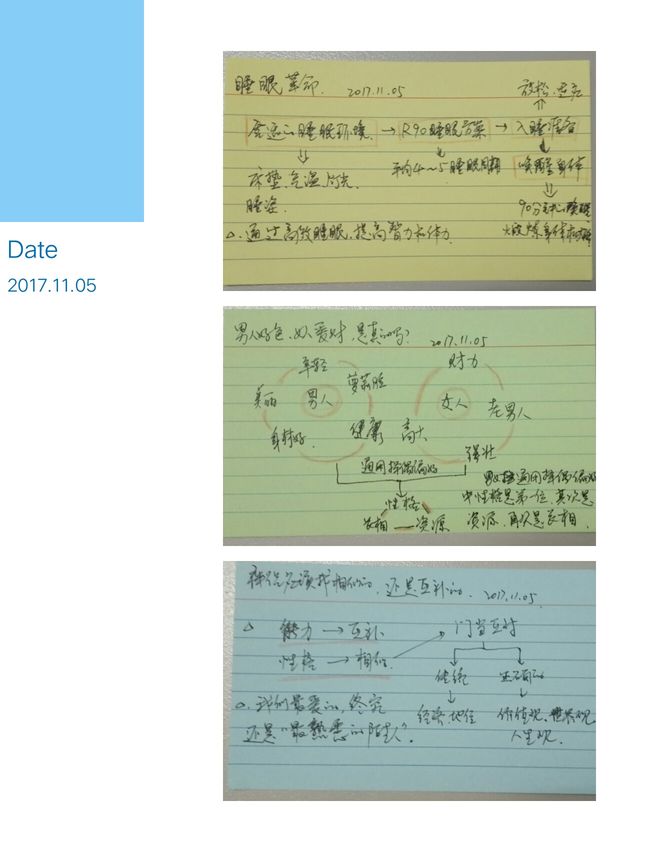 Date
2017.11.05
睡眠革命. 2017.11.05
放松.适应
合适的睡眠环境 → R90睡眠方案 → 入睡准备
床垫.气温.灯光.
睡姿.
平均4~5睡眠周期
唤醒身体
90分钟
△.通过高效睡眠,提高智力和体力.
男人好色,女人爱财,是真的吗? 2017.11.05
年轻
美丽
男人
身材好.
健康
高大
财力
女人
老男人
强壮
通用择偶偏好
性格
长相 — 资源
男女择通用择偶偏好
中性格是第一位,其次是
资源,再次是长相.
择偶应该找相似的,还是互补的. 2017.11.05
△ 能力 → 互补
性格 → 相似.
门当互对
传统
经济.地位
价值观、世界观
人生观.
△.我们最爱的,终究
还是“最熟悉的陌生人”.